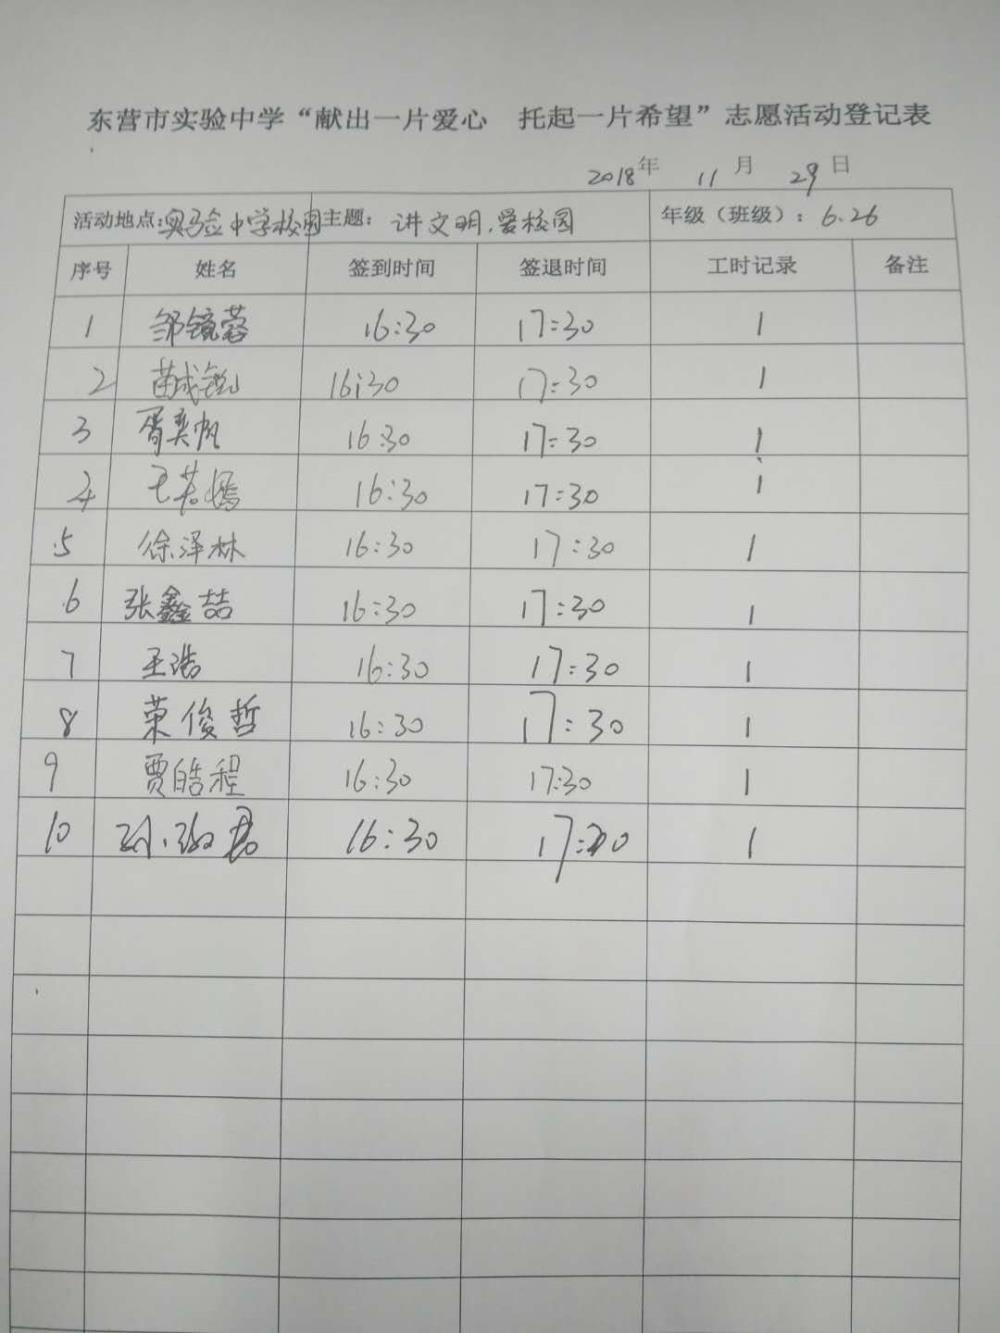 东营市实验中学“献出一片爱心 托起一片希望”志愿活动登记表
2018年 11 月 29 日
活动地点:实验中学校园 主题：讲文明,爱校园 年级（班级）：6.26
序号 姓名 签到时间 签退时间 工时记录 备注
1 邹镜蓉 16:30 17:30 1
2 苗成锐 16:30 17:30 1
3 胥奕帆 16:30 17:30 1
4 王若嫣 16:30 17:30 1
5 徐泽林 16:30 17:30 1
6 张鑫喆 16:30 17:30 1
7 王浩 16:30 17:30 1
8 荣俊哲 16:30 17:30 1
9 贾皓程 16:30 17:30 1
10 16:30 17:30 1